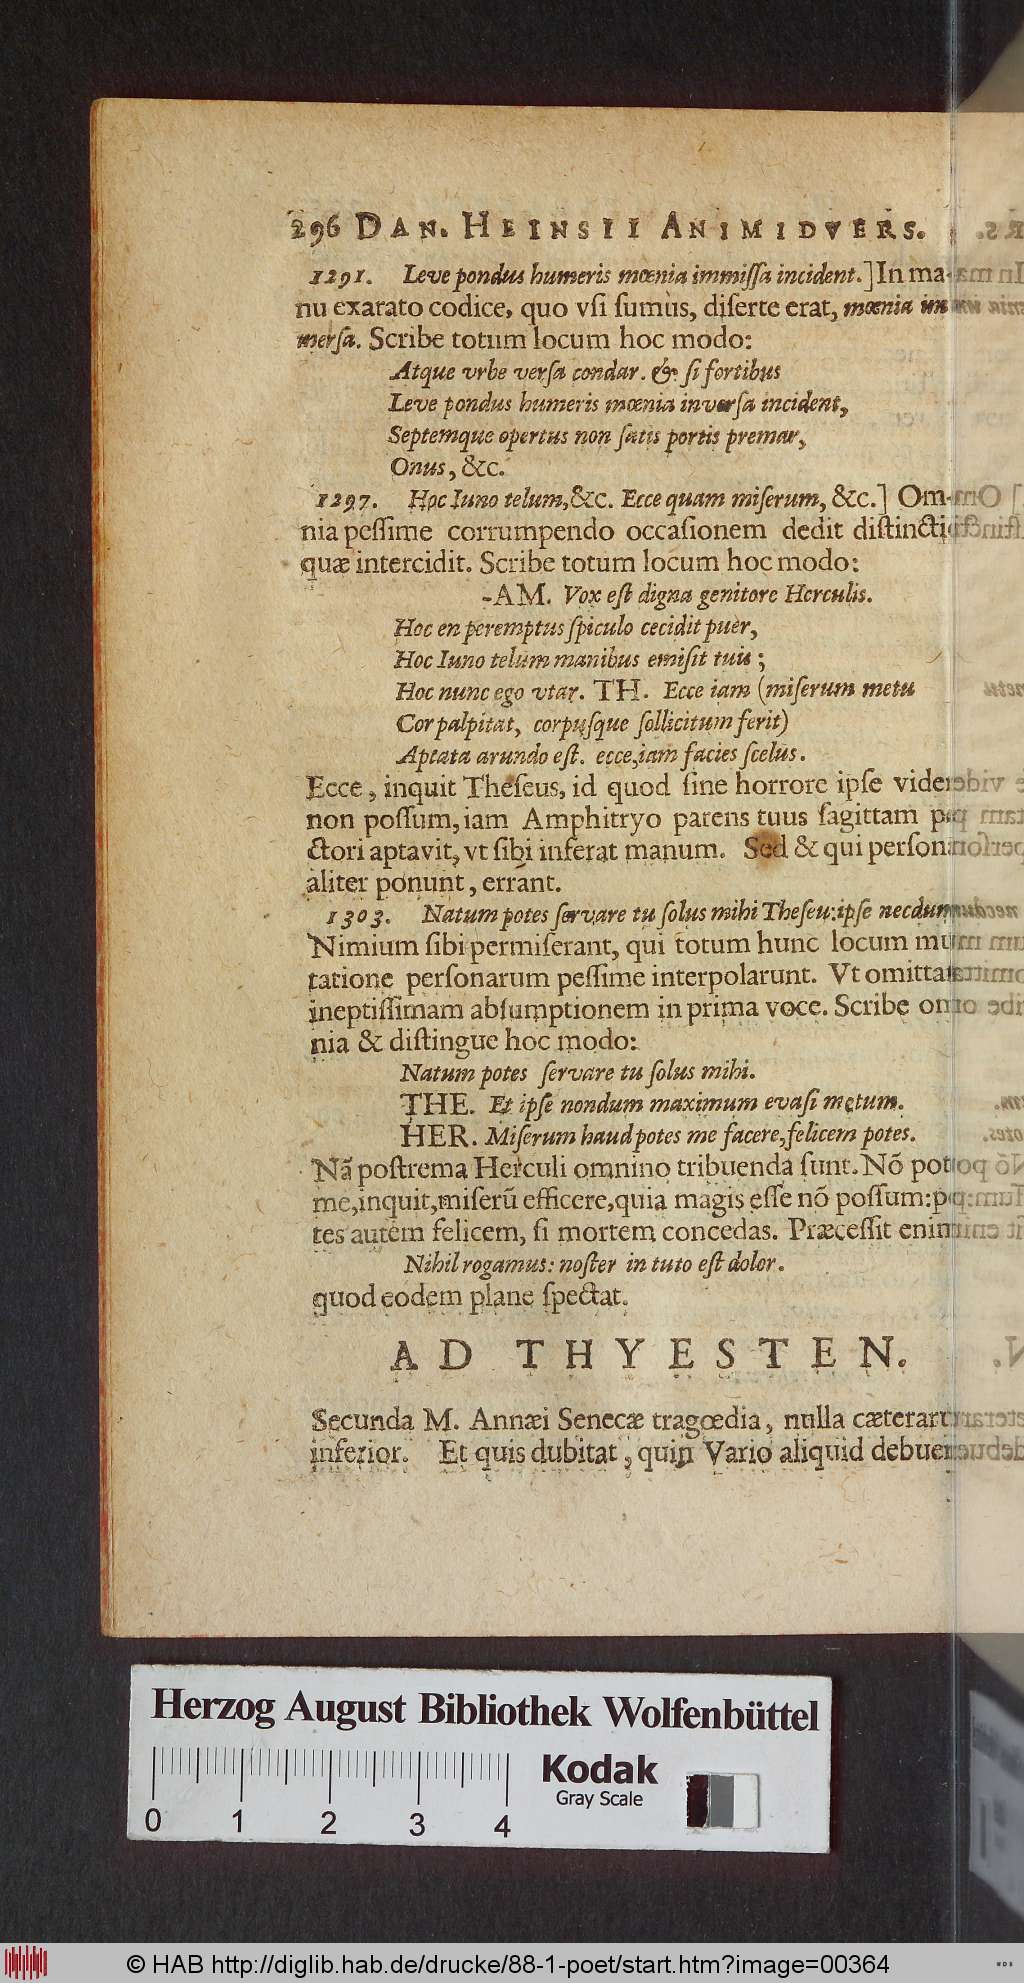 296 DAN. HEINSII ANIMIDVERS.
1291. Leve pondus humeris mœnia immissa incident.] In ma-
nu exarato codice, quo vsi sumus, diserte erat, mœnia in
mersa. Scribe totum locum hoc modo:
Atque vrbe versa condar. & si fortibus
Leve pondus humeris mœnia inversa incident,
Septemque opertus non satis portis premar,
Onus, &c.
1297. Hoc Iuno telum, &c. Ecce quam miserum, &c.] Om-
nia pessime corrumpendo occasionem dedit distincti
quæ intercidit. Scribe totum locum hoc modo:
-AM. Vox est digna genitore Herculis.
Hoc en peremptus spiculo cecidit puer,
Hoc Iuno telum manibus emisit tuis;
Hoc nunc ego vtar. TH. Ecce iam (miserum metu
Cor palpitat, corpusque sollicitum ferit)
Aptata arundo est. ecce, iam facies scelus.
Ecce, inquit Theseus, id quod sine horrore ipse vide
non possum, iam Amphitryo parens tuus sagittam p
ctori aptavit, vt sibi inferat manum. Sed & qui person
aliter ponunt, errant.
1303. Natum potes servare tu solus mihi Theseu: ipse necdum
Nimium sibi permiserant, qui totum hunc locum mu
tatione personarum pessime interpolarunt. Vt omitta
ineptissimam absumptionem in prima voce. Scribe om
nia & distingue hoc modo:
Natum potes servare tu solus mihi.
THE. Et ipse nondum maximum evasi metum.
HER. Miserum haud potes me facere, felicem potes.
Nã postrema Herculi omnino tribuenda sunt. Nõ pot
me, inquit, miserũ efficere, quia magis esse nõ possum: p
tes autem felicem, si mortem concedas. Præcessit enim
Nihil rogamus: noster in tuto est dolor.
quod eodem plane spectat.
AD THYESTEN.
Secunda M. Annæi Senecæ tragœdia, nulla cæterar
inferior. Et quis dubitat, quin Vario aliquid debue
Herzog August Bibliothek Wolfenbüttel
0 1 2 3 4
Kodak
Gray Scale
© HAB http://diglib.hab.de/drucke/88-1-poet/start.htm?image=00364